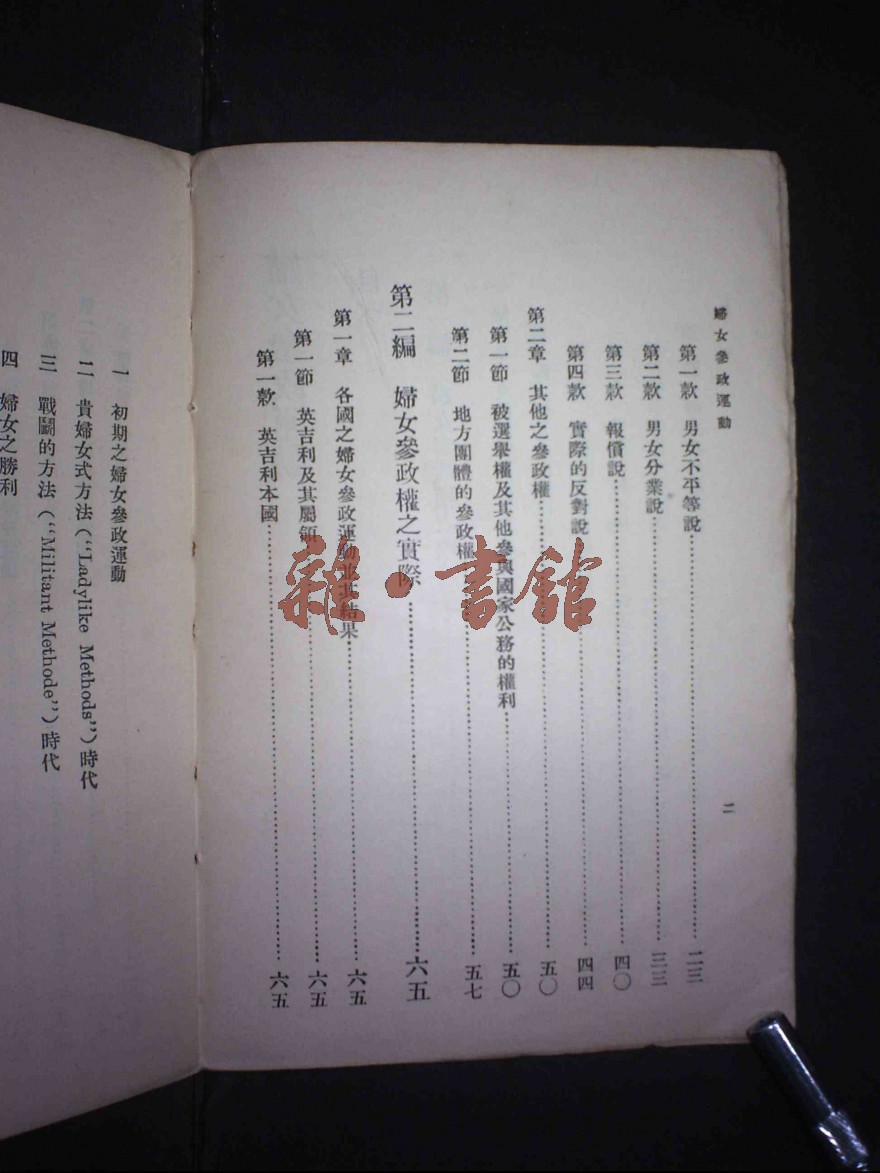 婦女參政運動
第一款 男女不平等說……二三
第二款 男女分業說……三三
第三款 報償說……四〇
第四款 實際的反對說……四四
第二章 其他之參政權……五〇
第一節 被選舉權及其他參與國家公務的權利……五〇
第二節 地方團體的參政權……五七
第二編 婦女參政權之實際……六五
第一章 各國之婦女參政運動並其結果……六五
第一節 英吉利及其屬領……六五
第一款 英吉利本國……六五
二
一 初期之婦女參政運動
二 貴婦女式方法(“Ladylike Methods”)時代
三 戰鬭的方法(“Militant Methode”)時代
四 婦女之勝利
雜·書館